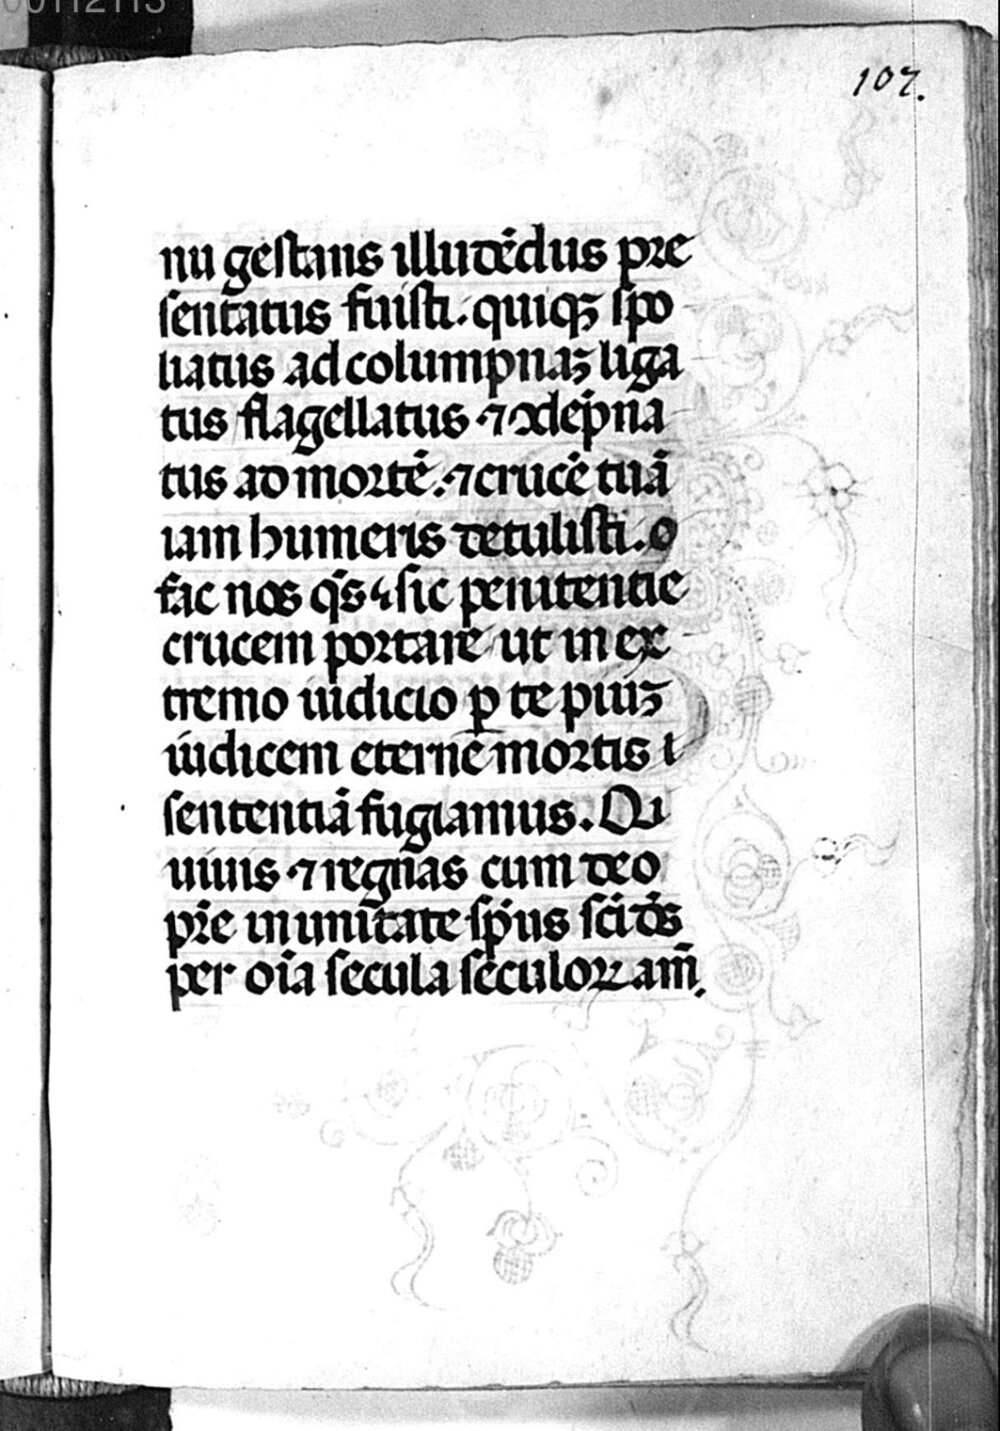 00112113
107.
nu gestans illudēdus pre
sentatus fuisti. quiqꝫ spo
liatus ad columpnaꝫ liga
tus flagellatus ⁊ ꝯdēpna
tus ad mortē. ⁊ crucē tuā
iam humeris detulisti. o
fac nos q̄s sic penitentie
crucem portare ut in ex
tremo iudicio ꝑ te piuꝫ
iudicem eterne mortis
sententiā fugiamus. Qui
uiuis ⁊ regnas cum deo
pr̄e in unitate sp̄us sc̄i d̄s
per oīa secula seculoꝝ am̄.